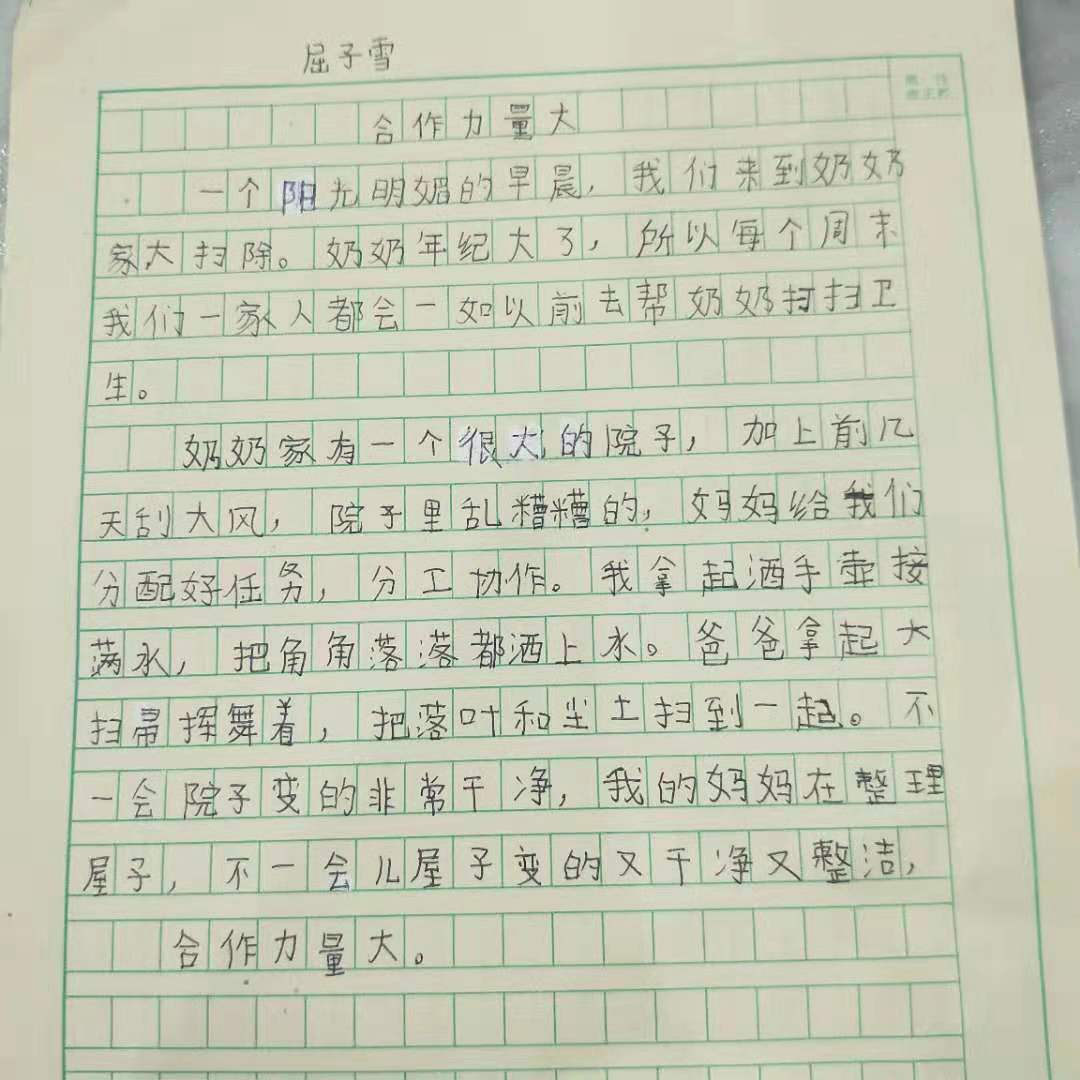 屈子雪
合作力量大
一个阳光明媚的早晨，我们来到奶奶
家大扫除。奶奶年纪大了，所以每个周末
我们一家人都会一如以前去帮奶奶扫扫卫
生。
奶奶家有一个很大的院子，加上前几
天刮大风，院子里乱糟糟的，妈妈给我们
分配好任务，分工协作。我拿起洒手壶接
满水，把角角落落都洒上水。爸爸拿起大
扫帚挥舞着，把落叶和尘土扫到一起。不
一会院子变的非常干净，我的妈妈在整理
屋子，不一会儿屋子变的又干净又整洁，
合作力量大。